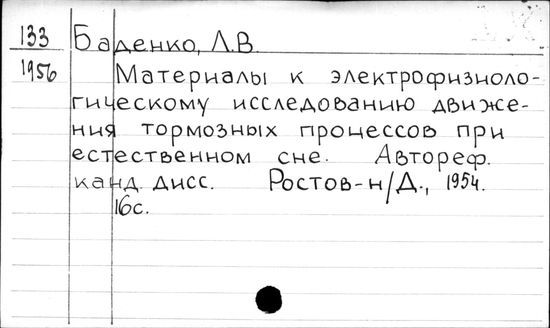 133 Баденко, Л.В.
1956 Материалы к электрофизиоло-
гическому исследованию движе-
ния тормозных процессов при
естественном сне. Автореф.
канд. дисс. Ростов-н/Д., 1954.
16с.